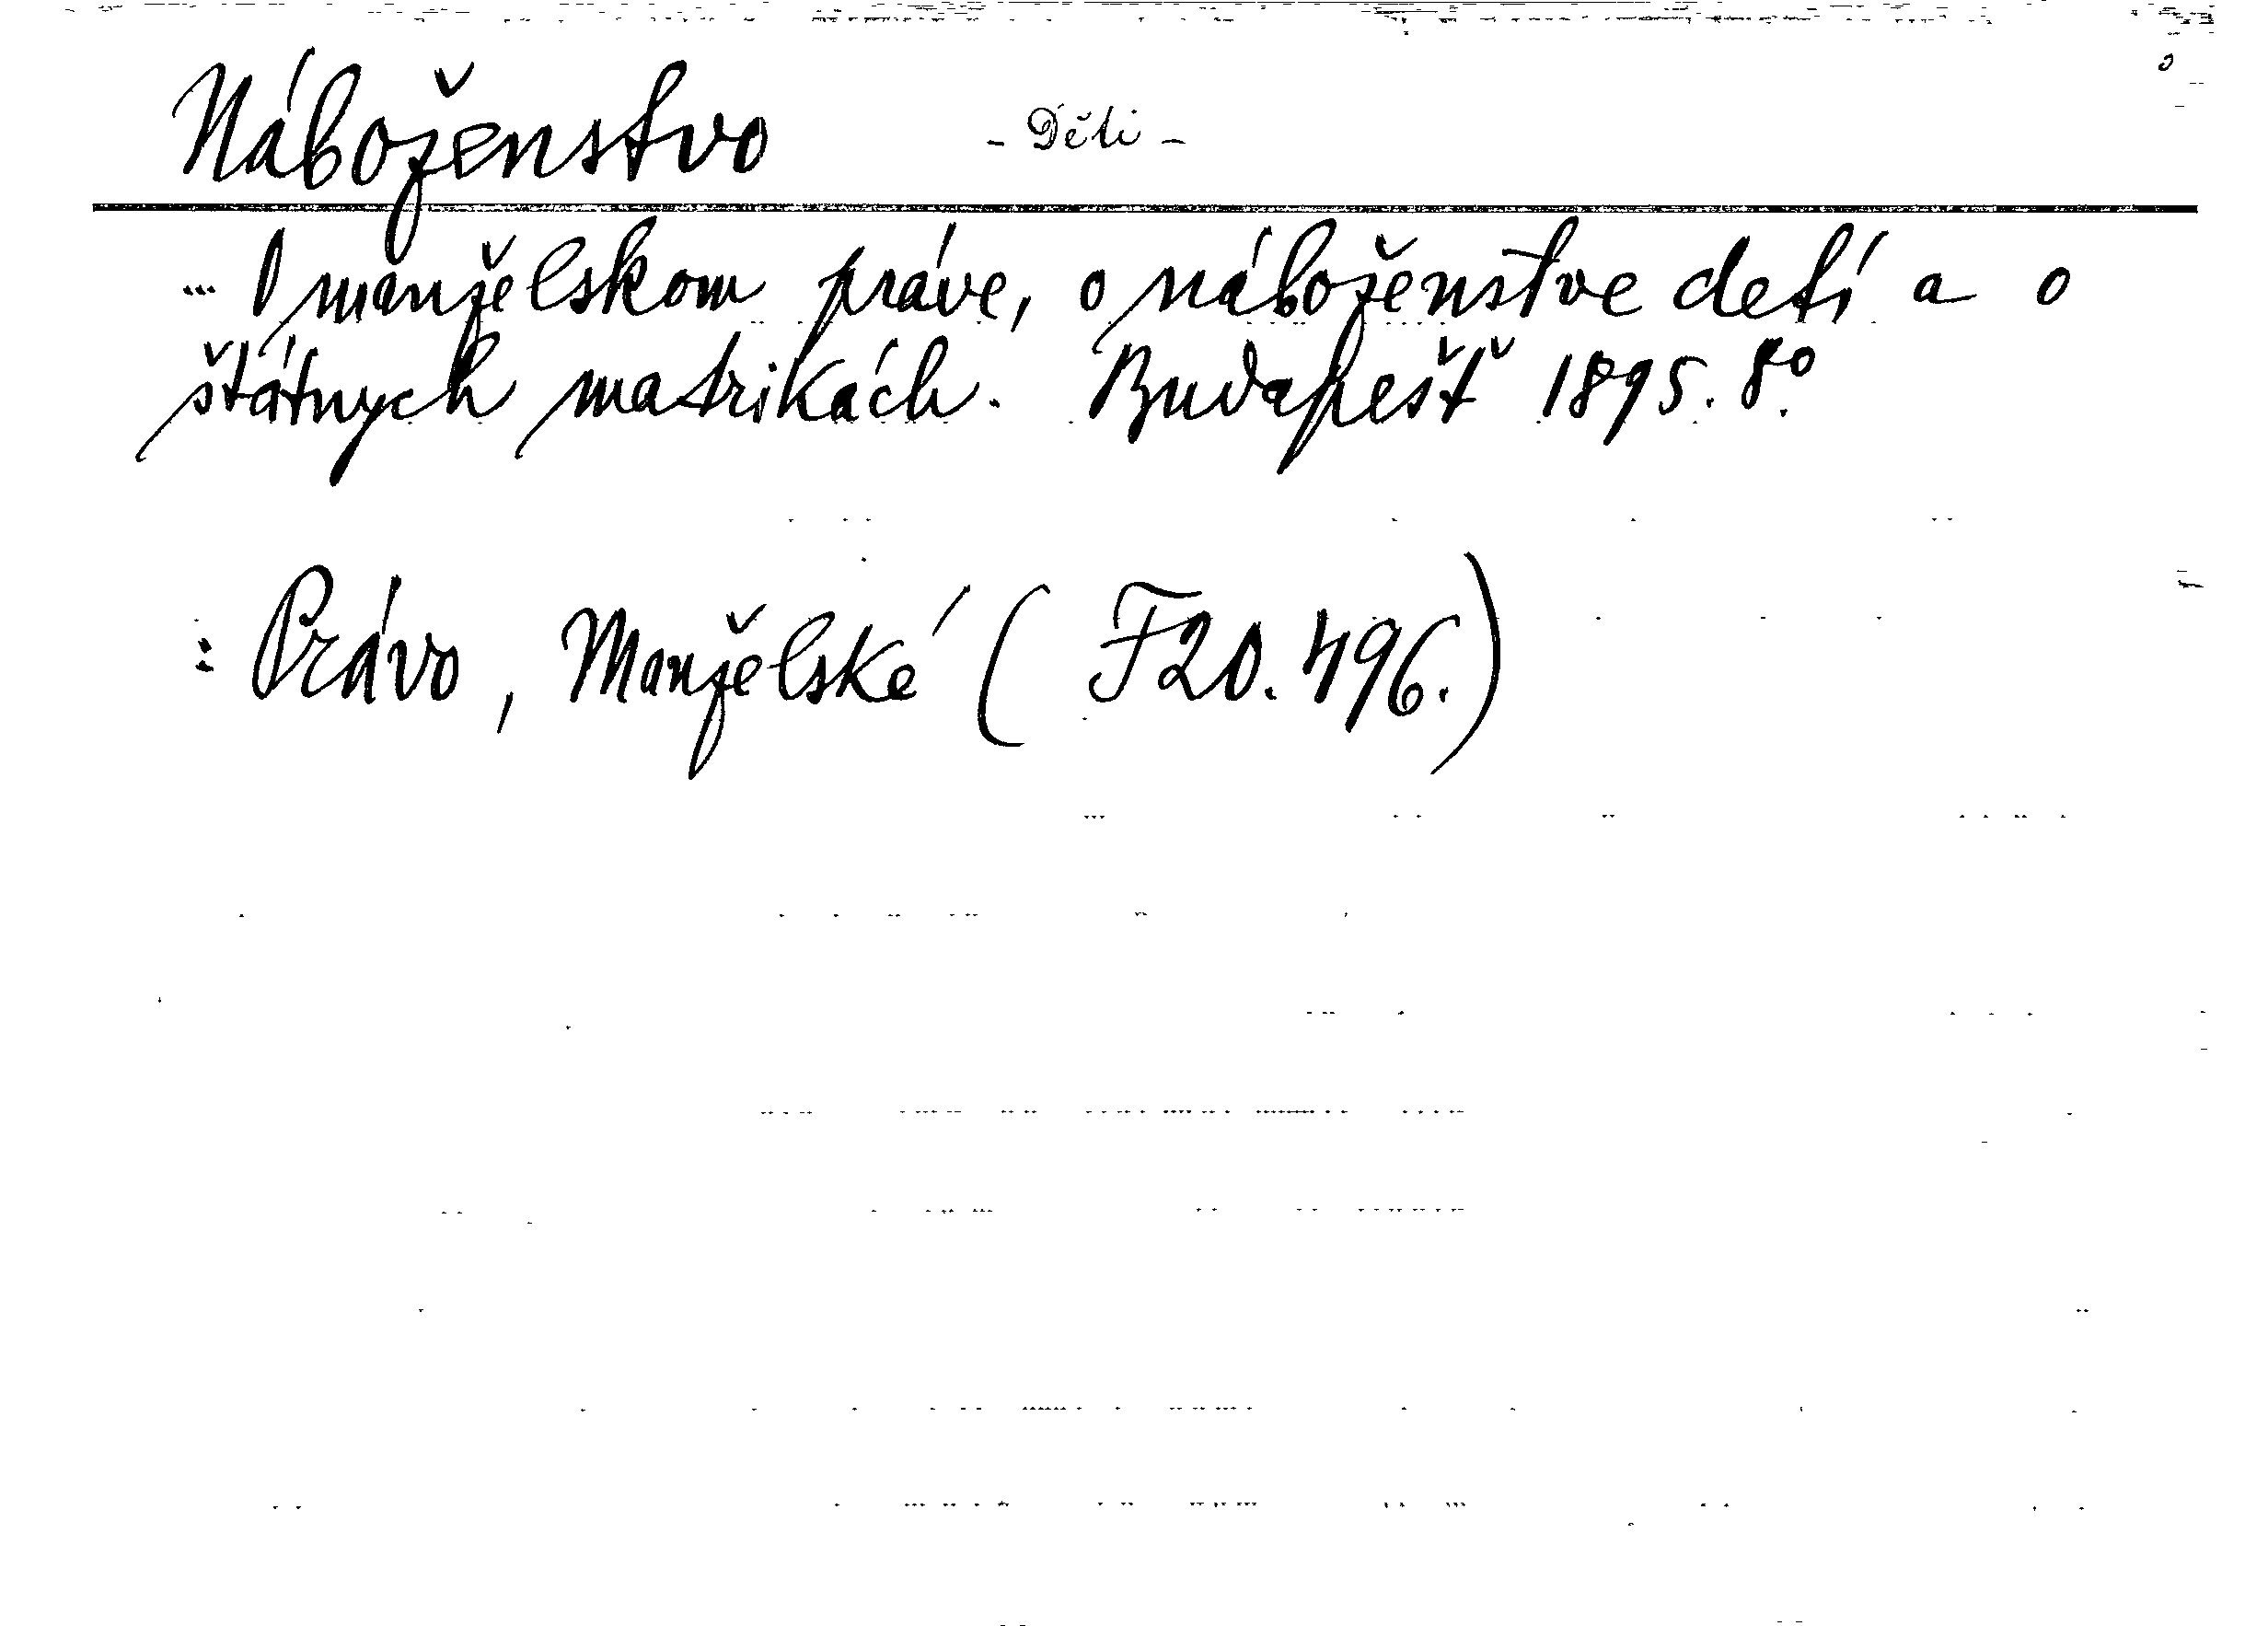 Náboženstvo - Děti -
... O manželskom práve, o náboženstve detí a o
štátnych matrikách. Budapešť 1895. 8°.
: Právo, Manželské (F20.496.)